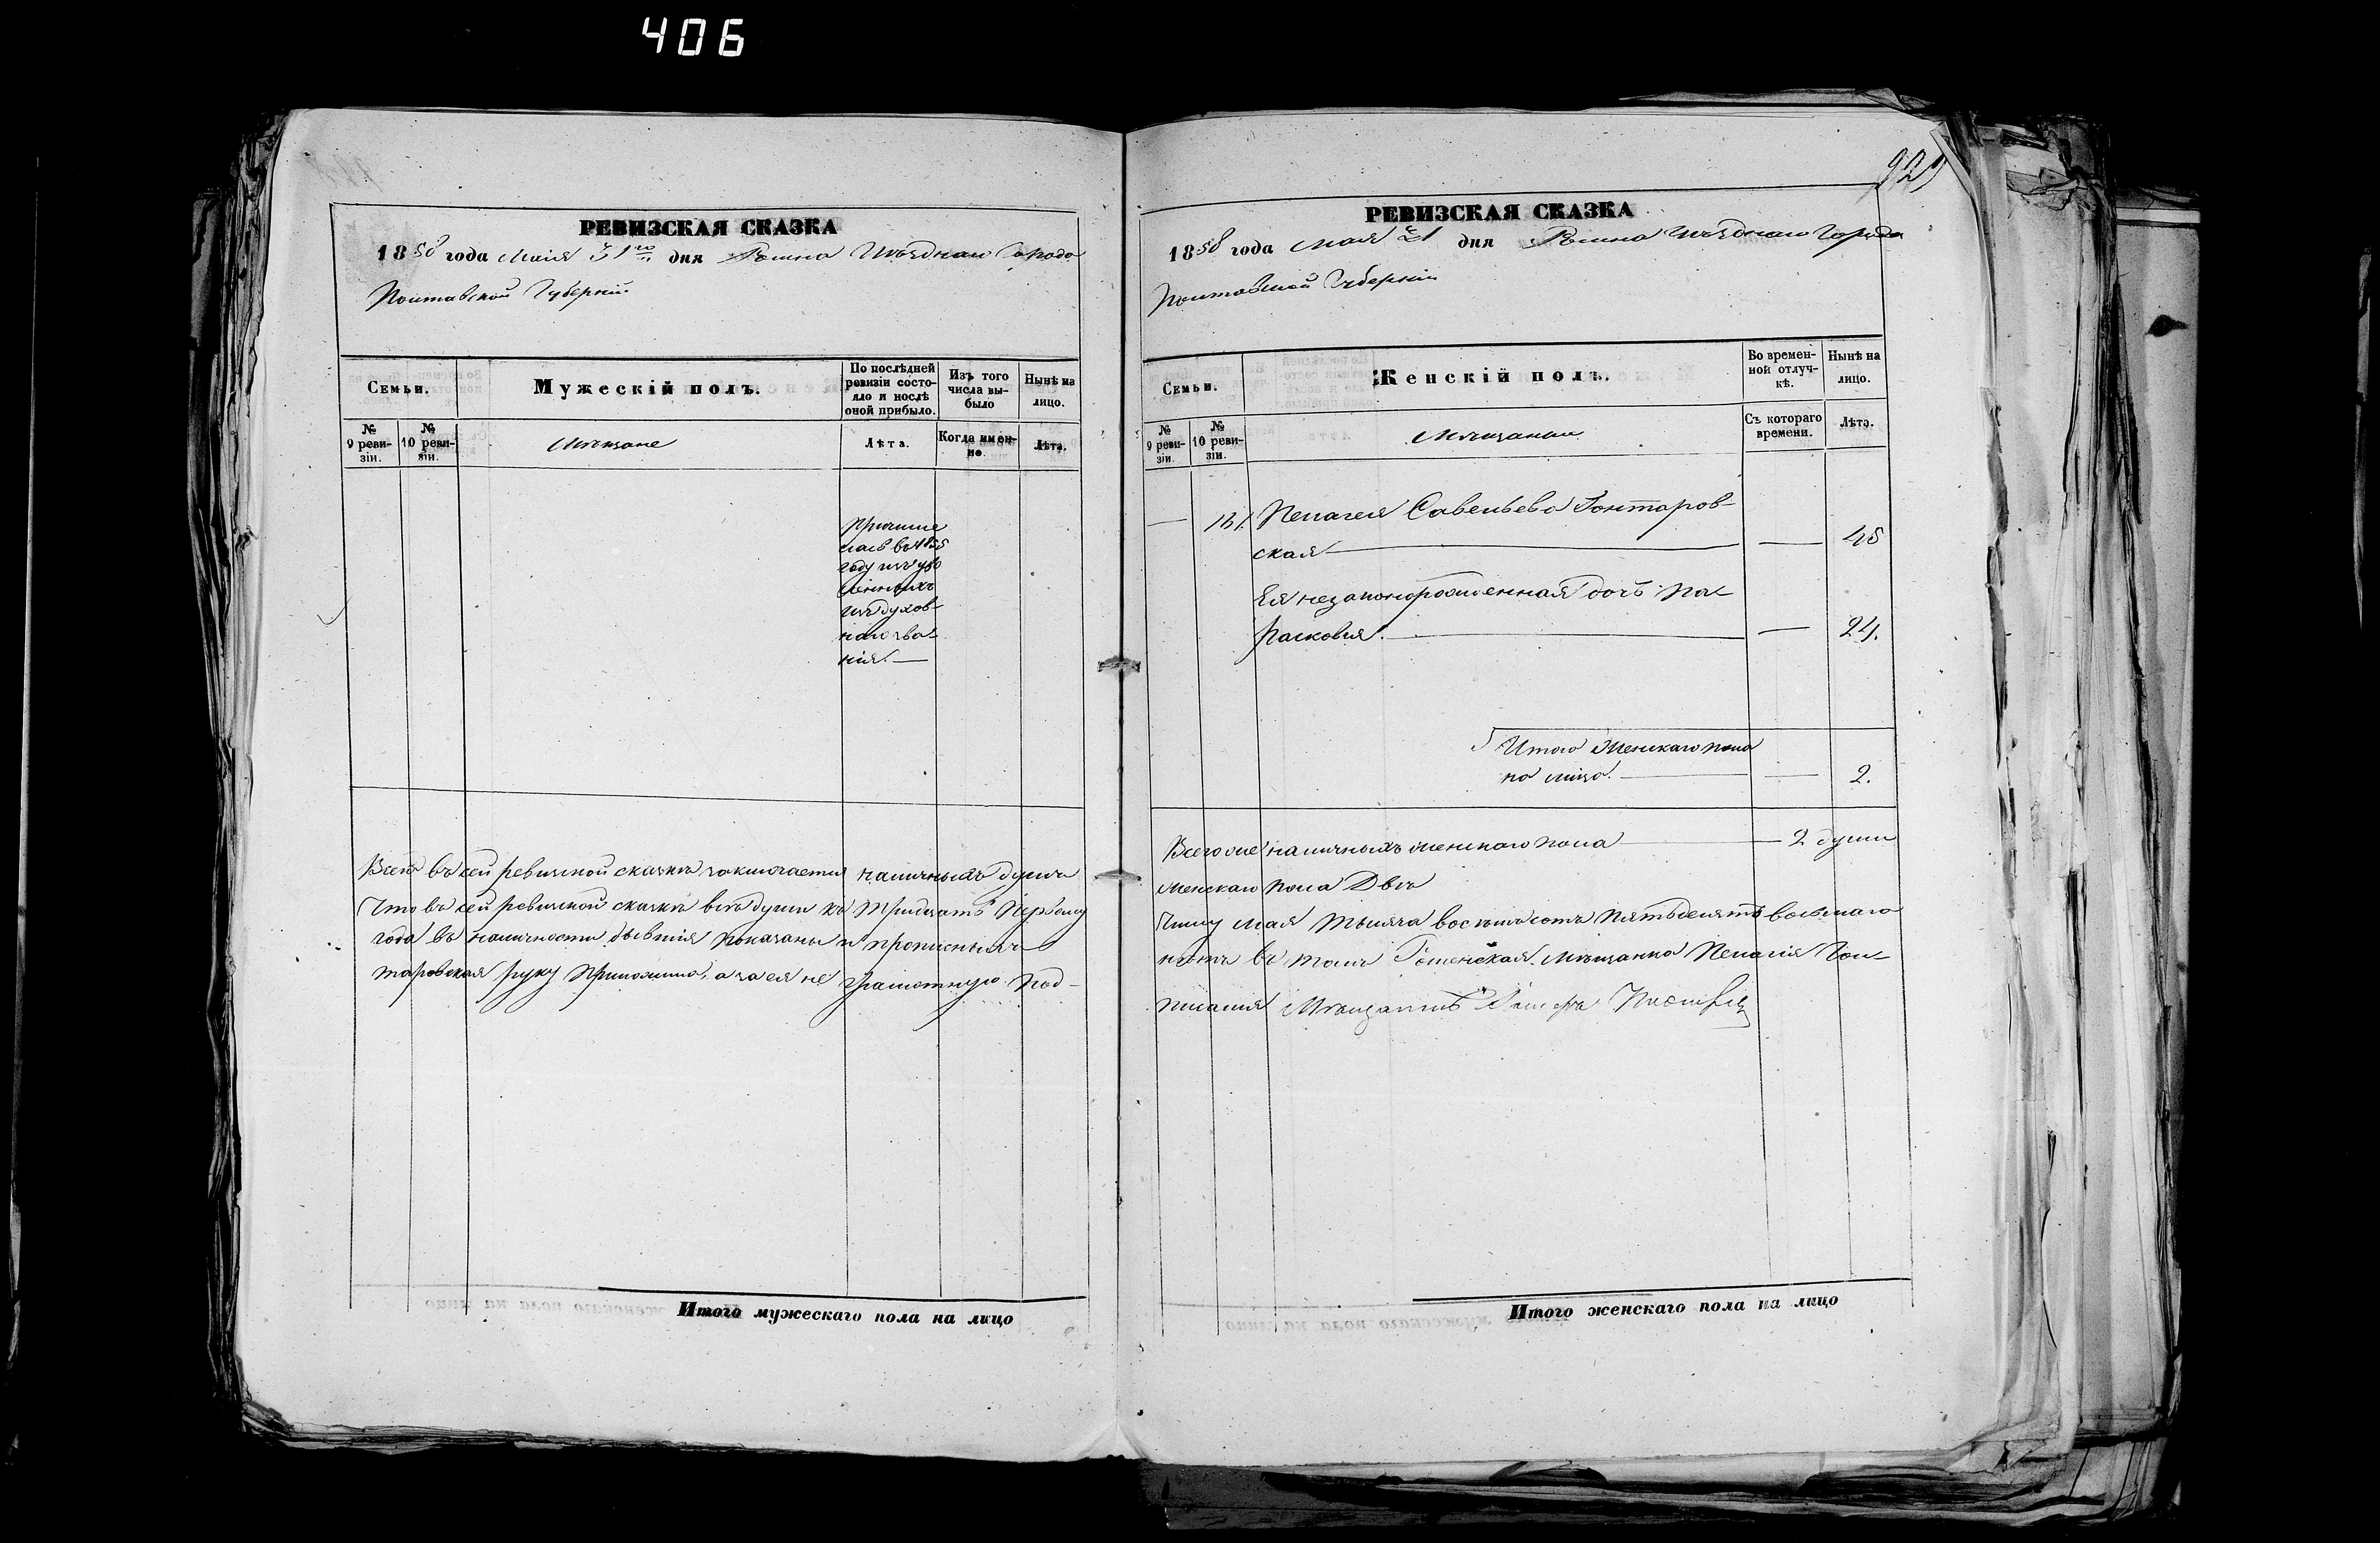 406
РЕВИЗСКАЯ СКАЗКА
1858 года Маія 31го дня Ромна Уѣзднаго Города
Полтавской Губерніи
Семьи.
Мужескій полъ.
По послѣдней ревизіи состояло и послѣ оной прибыло.
Изъ того числа выбыло
Нынѣ на лицо.
№ 9 ревизіи.
№ 10 ревизіи.
Мѣщане
Лѣта.
Когда именно.
Лѣта.
Причисле
лась въ 1855
году изъ уво
ленныхъ
изъ духов-
наго зва-
нія.
Всего въ сей ревизской сказкѣ заключается наличныхъ душъ
Что въ сей ревизской сказкѣ всѣ души къ тридцать первому
года въ наличности бывшія показаны и прописныхъ
таровская руку приложила, а за ея не грамотную под-
Итого мужескаго пола на лицо
929
РЕВИЗСКАЯ СКАЗКА
1858 года Мая 31 дня Ромна Уѣзднаго Города
Полтавской Губерніи
Семьи.
Женскій полъ.
Во временной отлучкѣ.
Нынѣ на лицо.
№ 9 ревизіи.
№ 10 ревизіи.
Мѣщанки
Съ котораго времени.
Лѣта.
— 131. Пелагея Савельева Гонтаров-
ская — — 45
Ея незаконорожденная дочь Па-
расковія. — — 24.
Итого Женскаго пола
на лицо. — — 2.
Всего же наличныхъ женскаго пола — 2 души
женскаго пола Двѣ
Числу Мая тысяча восемьсотъ пятьдесятъ восьмаго
нетъ въ томъ Роменская Мѣщанка Пелагія Гон-
писался Мѣщанинъ
Итого женскаго пола на лицо